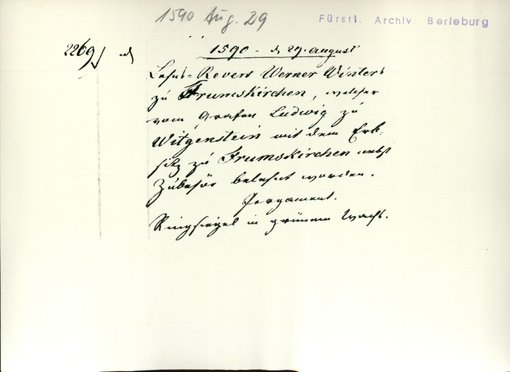 1590 Aug. 29
Fürstl. Archiv Berleburg
2269
1590 - d 29. august
Lehns-Revers Werner Winters
zu Frumskirchen, welcher
vom Grafen Ludwig zu
Witgenstein mit dem Erb-
sitz zu Frumskirchen nebst
Zubehör belehnt worden.
Pergament.
Ringsiegel in grünem Wachs.